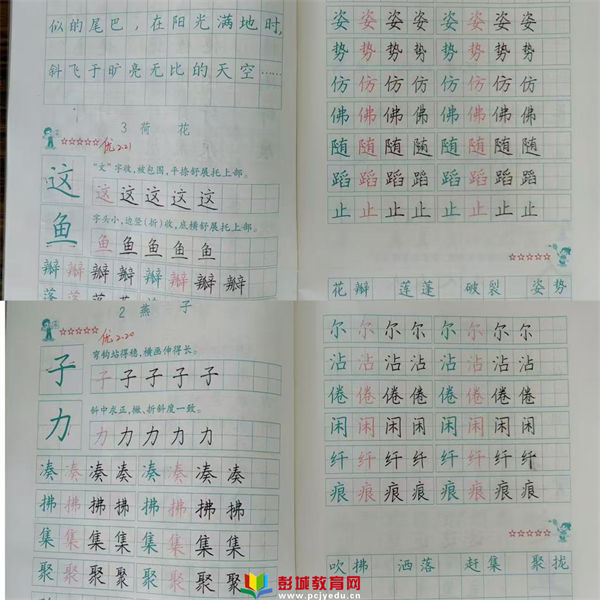 似的尾巴，在阳光满地时，
斜飞于旷亮无比的天空……
3 荷 花
优 2.21
这
“文”字收，被包围，平捺舒展托上部。
这 这 这 这 这
鱼
字头小，边竖（折）收，底横舒展托上部。
鱼 鱼 鱼 鱼 鱼
瓣 瓣 瓣 瓣 瓣 瓣 瓣 瓣
姿 姿 姿 姿 姿 姿 姿 姿
势 势 势 势 势 势 势 势
仿 仿 仿 仿 仿 仿 仿 仿
佛 佛 佛 佛 佛 佛 佛 佛
随 随 随 随 随 随 随 随
蹈 蹈 蹈 蹈 蹈 蹈 蹈 蹈
止 止 止 止 止 止 止 止
花 瓣 莲 蓬 破 裂 姿 势
2 燕 子
优 2.20
子
弯钩站得稳，横画伸得长。
子 子 子 子 子
力
斜中求正，撇、折斜度一致。
力 力 力 力 力
凑 凑 凑 凑 凑 凑 凑 凑
拂 拂 拂 拂 拂 拂 拂 拂
集 集 集 集 集 集 集 集
聚 聚 聚 聚 聚 聚 聚 聚
尔 尔 尔 尔 尔 尔 尔 尔
沾 沾 沾 沾 沾 沾 沾 沾
倦 倦 倦 倦 倦 倦 倦 倦
闲 闲 闲 闲 闲 闲 闲 闲
纤 纤 纤 纤 纤 纤 纤 纤
痕 痕 痕 痕 痕 痕 痕 痕
吹 拂 洒 落 赶 集 聚 拢
彭城教育网
www.pcjyedu.cn